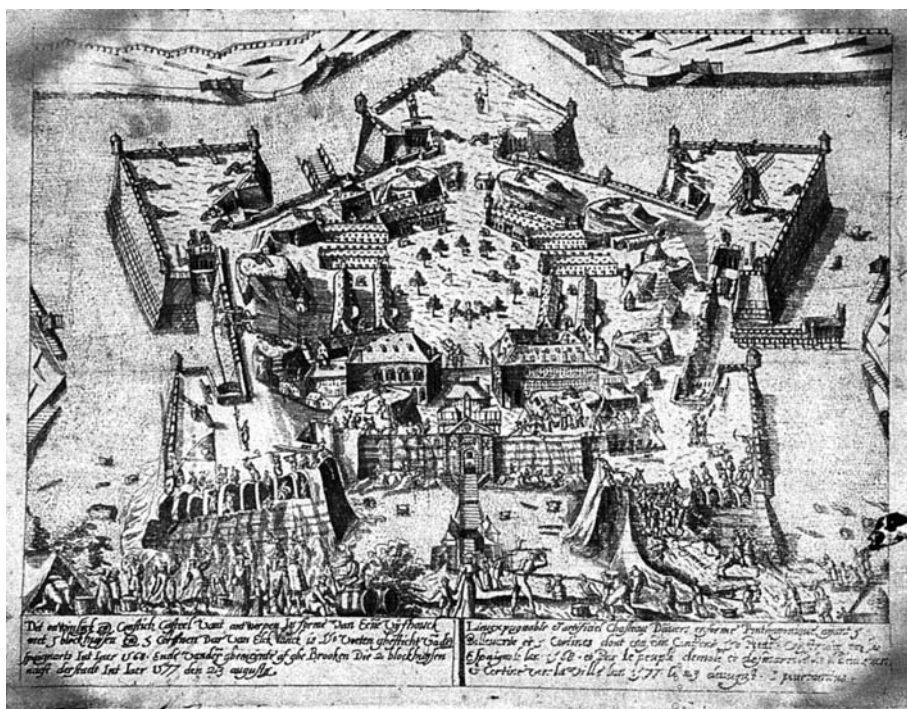 Dat onwinlick Constich Casteel Vant antwerpen In forme Van Eene Vijfhouck
met 5 blockhuysen 5 Gordynen Dar Van Elck is Voeten ghesticht Va de
Spangiaerts Int Iaer 1568. Ende Vander ghemeynte af ghe Brooken Die 2 blockhuysen
naest der stadt Int Iaer 1577 den 23 augusty
L'inexpugnable & artificiel Chasteau D'Anvers en forme Pentagonique ayant 5
Bollevercx et 5 Cortines dont Piedz Construit
Espaignolz l'an 1568. et Par le peuple demolie et desmantelé 2
& Cortine vers la Ville l'an 1577 le 23 august.